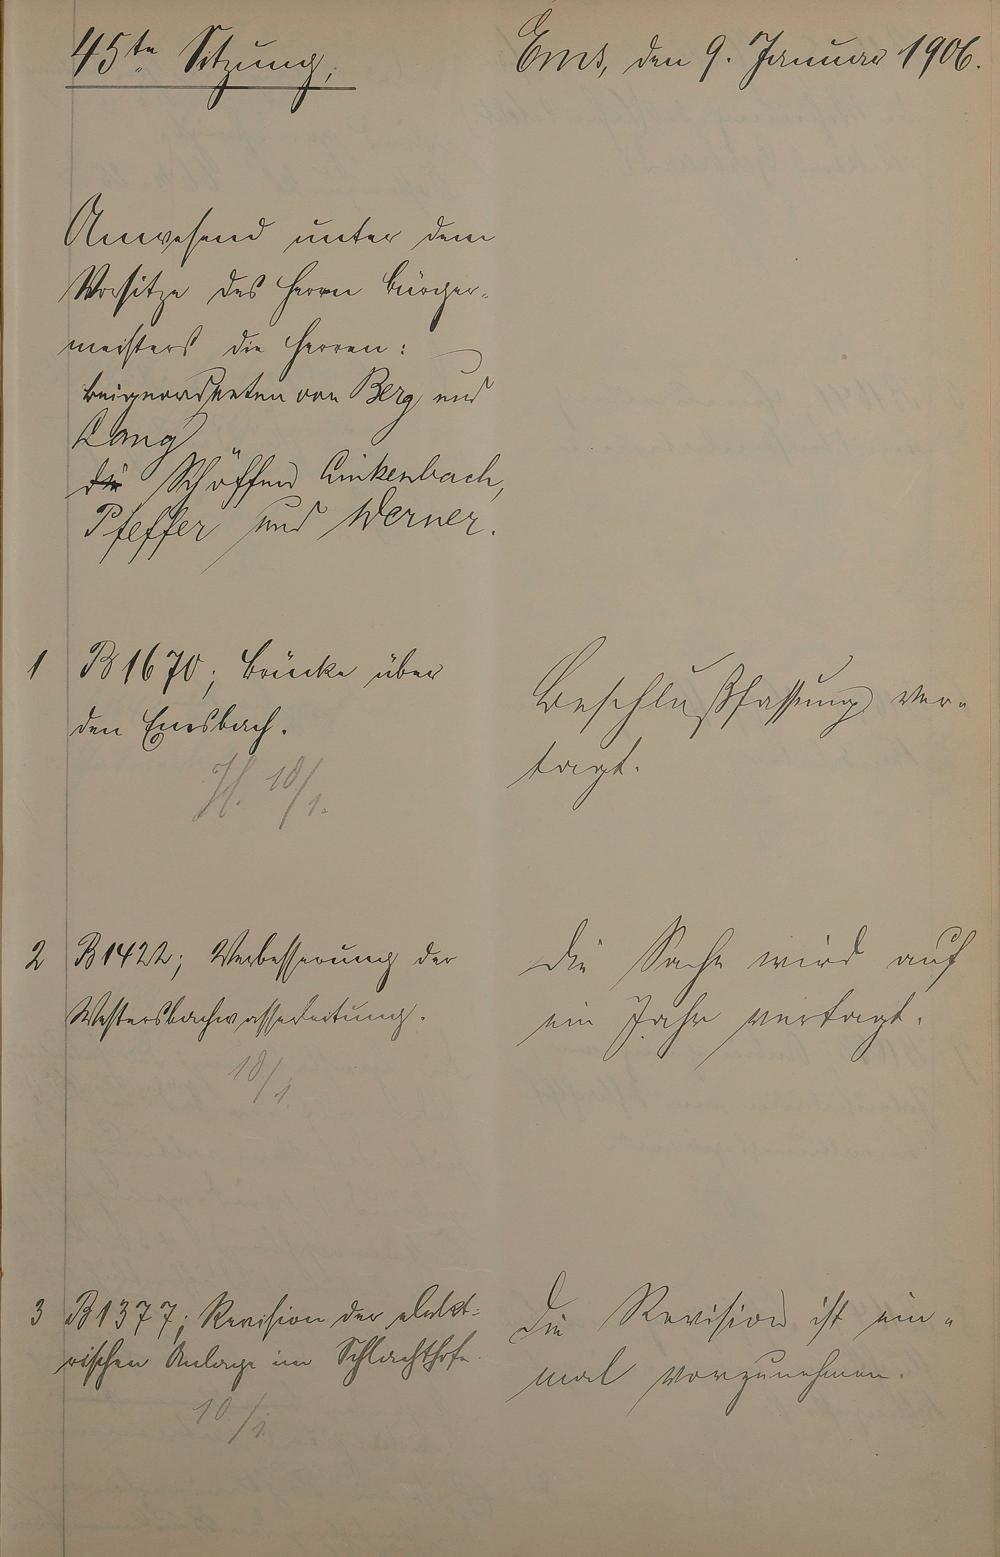 45te Sitzung.
Ems, den 9. Januar 1906.
Anwesend unter dem
Vorsitze des Herrn Bürger-
meisters die Herren:
Beigeordneten von Berg und
Lang
die Schöffen Linkenbach,
Pfeffer und Werner.
1 B1670; Brücke über
den Emsbach.
H. 10/1.
Beschlußfassung ver-
tagt.
2 B1422; Verbesserung der
Westersbachwasserleitung.
10/1.
Die Sache wird auf
ein Jahr vertagt.
3 B1377; Revision der elekt-
rischen Anlage im Schlachthofe.
10/1.
Die Revision ist ein-
mal vorzunehmen.